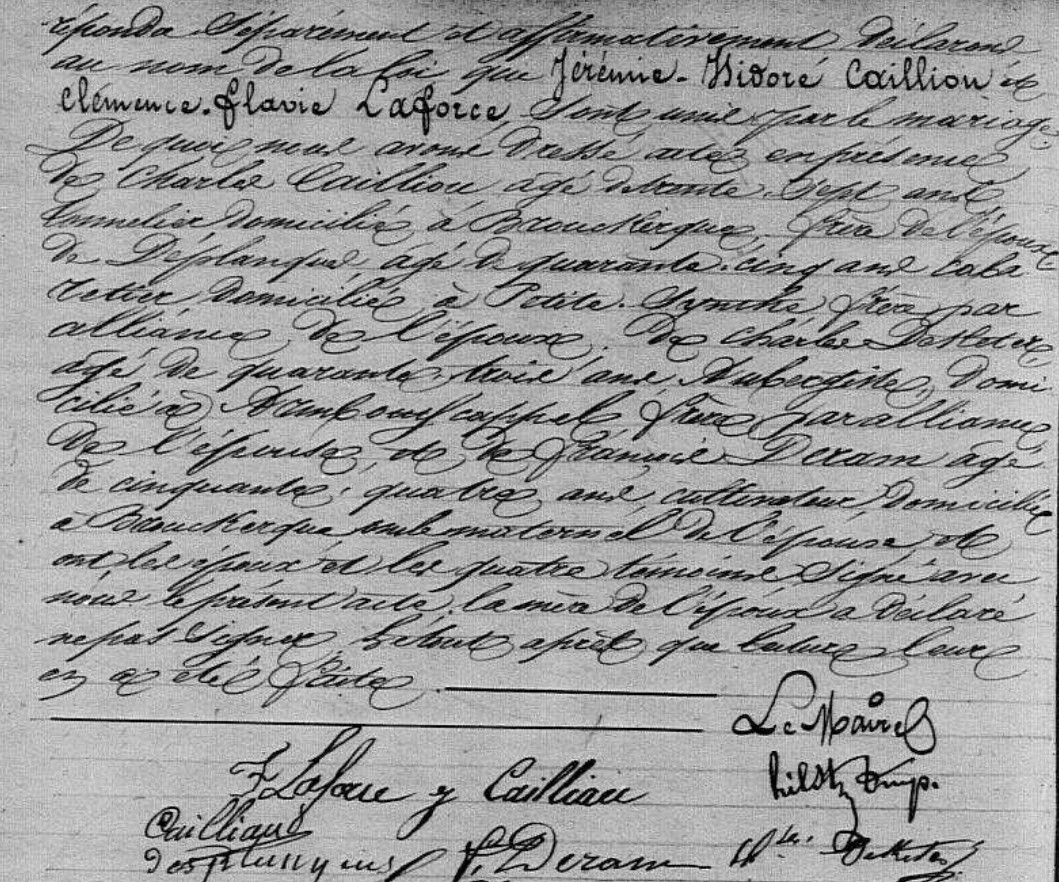 répondu séparément et affirmativement déclarons
au nom de la loi que Jérémie-Isidore Cailliou et
Clémence-flavie Laforce, sont unis par le mariage
De quoi nous avons dressé acte en présence
de Charles Cailliou âgé de trente-sept ans
tonnelier domicilié à Brouckerque, frère de l'époux
de Desplanque âgé de quarante-cinq ans caba
retier domicilié à Petite-Synthe frère par
alliance de l'époux, de Charles Deketer
âgé de quarante-trois ans Aubergiste, domi
cilié à Armbouscappel frère par alliance
de l'épouse, et de François Deram âgé
de cinquante-quatre ans, cultivateur, domicilié
à Brouckerque oncle maternel de l'épouse, et
ont les époux et les quatre témoins signé avec
nous le présent acte, la mère de l'époux a déclaré
ne pas signer, le tout après que lecture leur
en a été faite
Le Maire
F Laforce y Cailliau
Cailliaud
Desplanque f. Deram Deketer